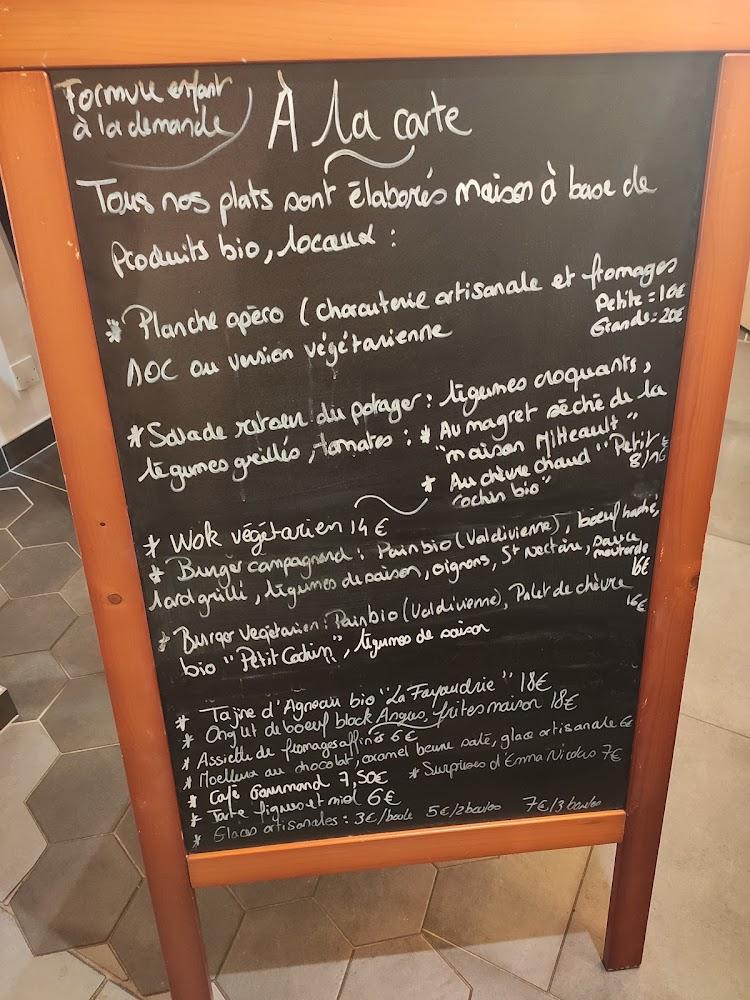 Formule enfant
à la demande
À la carte
Tous nos plats sont élaborés maison à base de
Produits bio, locaux :
* Planche apéro (charcuterie artisanale et fromages
AOC ou version végétarienne
Petite = 16€
Grande = 20€
* Salade retour du potager : légumes croquants,
légumes grillés, tomates :
* Au magret séché de la
"maison Mitteault"
* Au chèvre chaud "Petit
Cochin bio"
* Wok végétarien 14 €
* Burger campagnard : Pain bio (Valdivienne), boeuf haché,
lard grillé, légumes de saison, oignons, St Nectaire, sauce
moutarde
16€
* Burger Végétarien : Pain bio (Valdivienne), Palet de chèvre
bio "Petit Cochin", légumes de saison
16€
* Tajine d'Agneau bio "La Fayaudrie" 18€
* Onglet de boeuf black Angus, frites maison 18€
* Assiette de fromages affinés 6€
* Moelleux au chocolat, caramel beurre salé, glace artisanale 6€
* Café Gourmand 7,50€
* Surprises d'Emma Nicolas 7€
* Tarte figues et miel 6€
* Glaces artisanales : 3€/boule 5€/2 boules 7€/3 boules